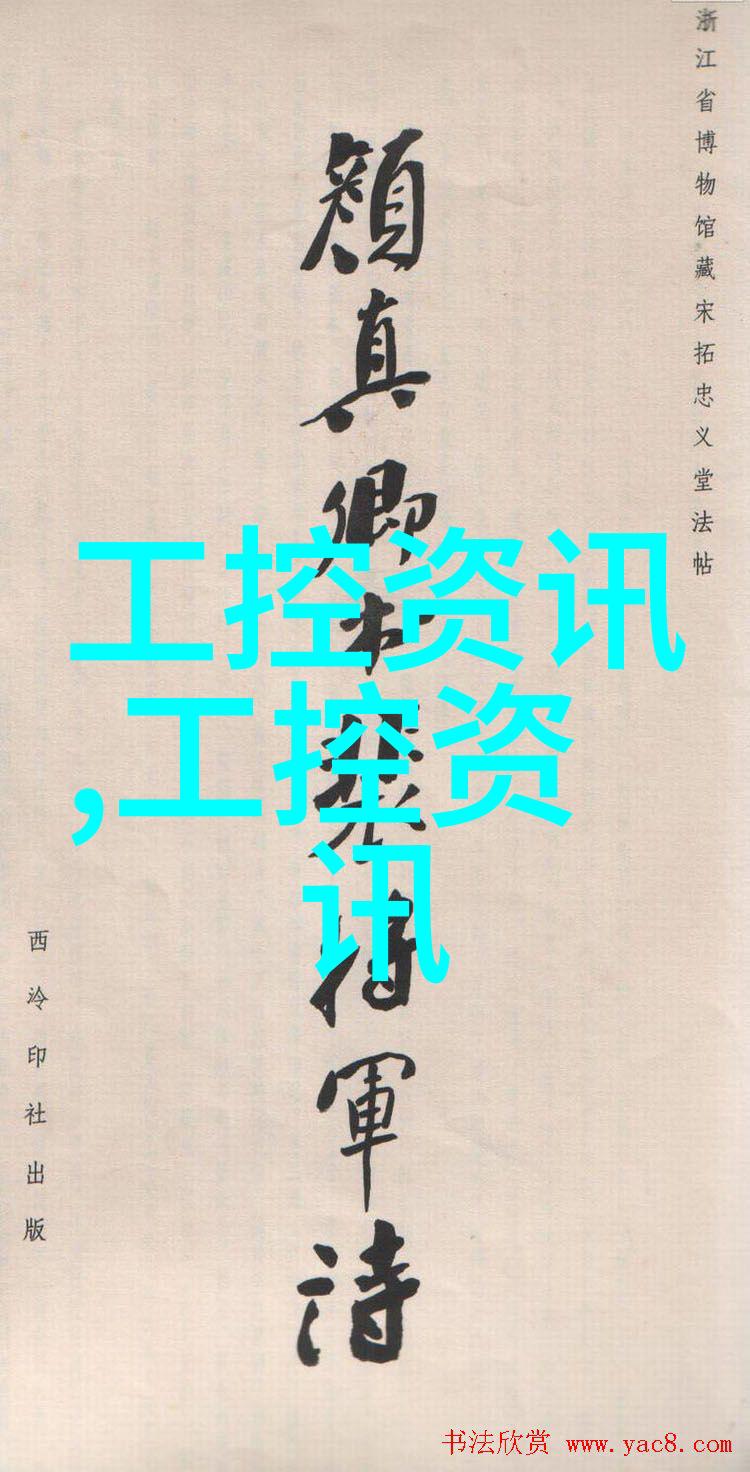 浙江省博物馆藏宋拓忠义堂法帖
顔真卿裴将軍诗
西泠印社出版
工控资讯
,工控资
讯
书法欣赏 www.yac8.com